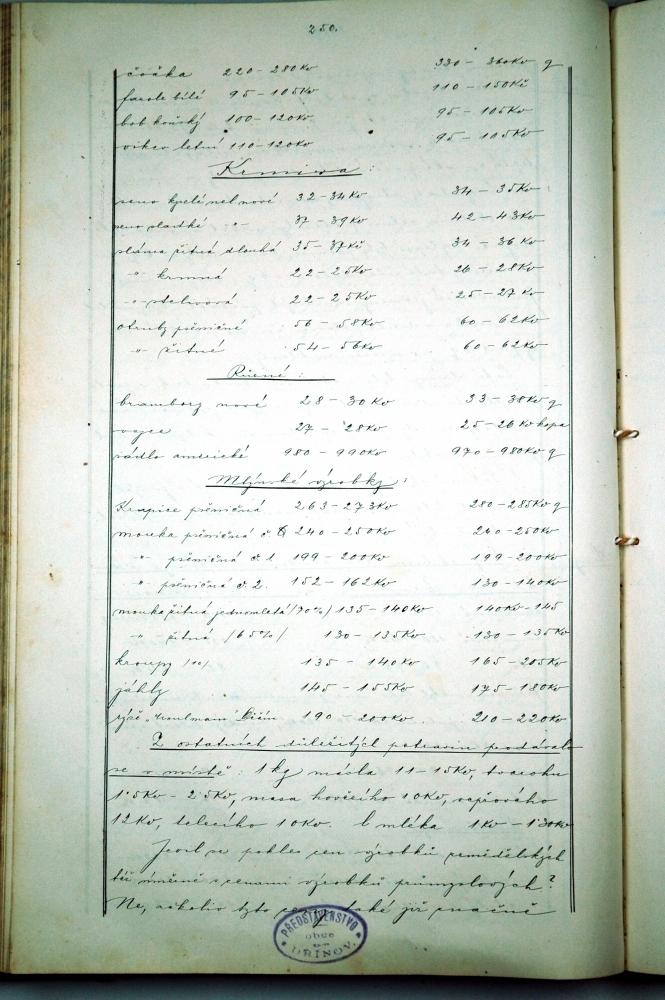 250.
čočka 220 - 280 Kč 330 - 360 Kč q
fazole bílé 95 - 105 Kč 110 - 150 Kč
bob koňský 100 - 120 Kč 95 - 105 Kč
vikev letní 110 - 120 Kč 95 - 105 Kč
Krmiva:
seno kyselé nel. nové 32 - 34 Kč 34 - 35 Kč
seno sladké -"- 37 - 39 Kč 42 - 43 Kč
sláma žitná dlouhá 35 - 37 Kč 34 - 36 Kč
-"- krmná 22 - 25 Kč 26 - 28 Kč
-"- stelivová 22 - 25 Kč 25 - 27 Kč
otruby pšeničné 56 - 58 Kč 60 - 62 Kč
-"- žitné 54 - 56 Kč 60 - 62 Kč
Různé:
brambory nové 28 - 30 Kč 33 - 38 Kč q
vejce 27 - 28 Kč 25 - 26 Kč kopa
sádlo americké 980 - 990 Kč 970 - 980 Kč q
Mlýnské výrobky:
Krupice pšeničná 263 - 273 Kč 280 - 285 Kč q
mouka pšeničná č. 0 240 - 250 Kč 240 - 250 Kč
" pšeničná č. 1 199 - 200 Kč 199 - 200 Kč
" pšeničná č. 2. 152 - 162 Kč 130 - 140 Kč
mouka žitná jednomletá /70%/ 135 - 140 Kč 140 Kč - 145
-"- žitná /65%/ 130 - 135 Kč 130 - 135 Kč
kroupy 135 - 140 Kč 165 - 205 Kč
jáhly 145 - 155 Kč 175 - 180 Kč
rýže "Moulmain" 190 - 200 Kč 210 - 220 Kč
Z ostatních důležitých potravin prodávalo
se v místě: 1 kg másla 11 - 15 Kč, tvarohu
1.5 Kč - 2.5 Kč, masa hovězího 10 Kč, vepřového
12 Kč, telecího 10 Kč. l mléka 1 Kč - 1.30 Kč
Jevil se pokles cen výrobků zemědělských
též úměrně s cenami výrobků průmyslových?
Ne, ačkoliv tyto ceny také již značně
PŘEDSTAVENSTVO
obce
DŘÍNOV.